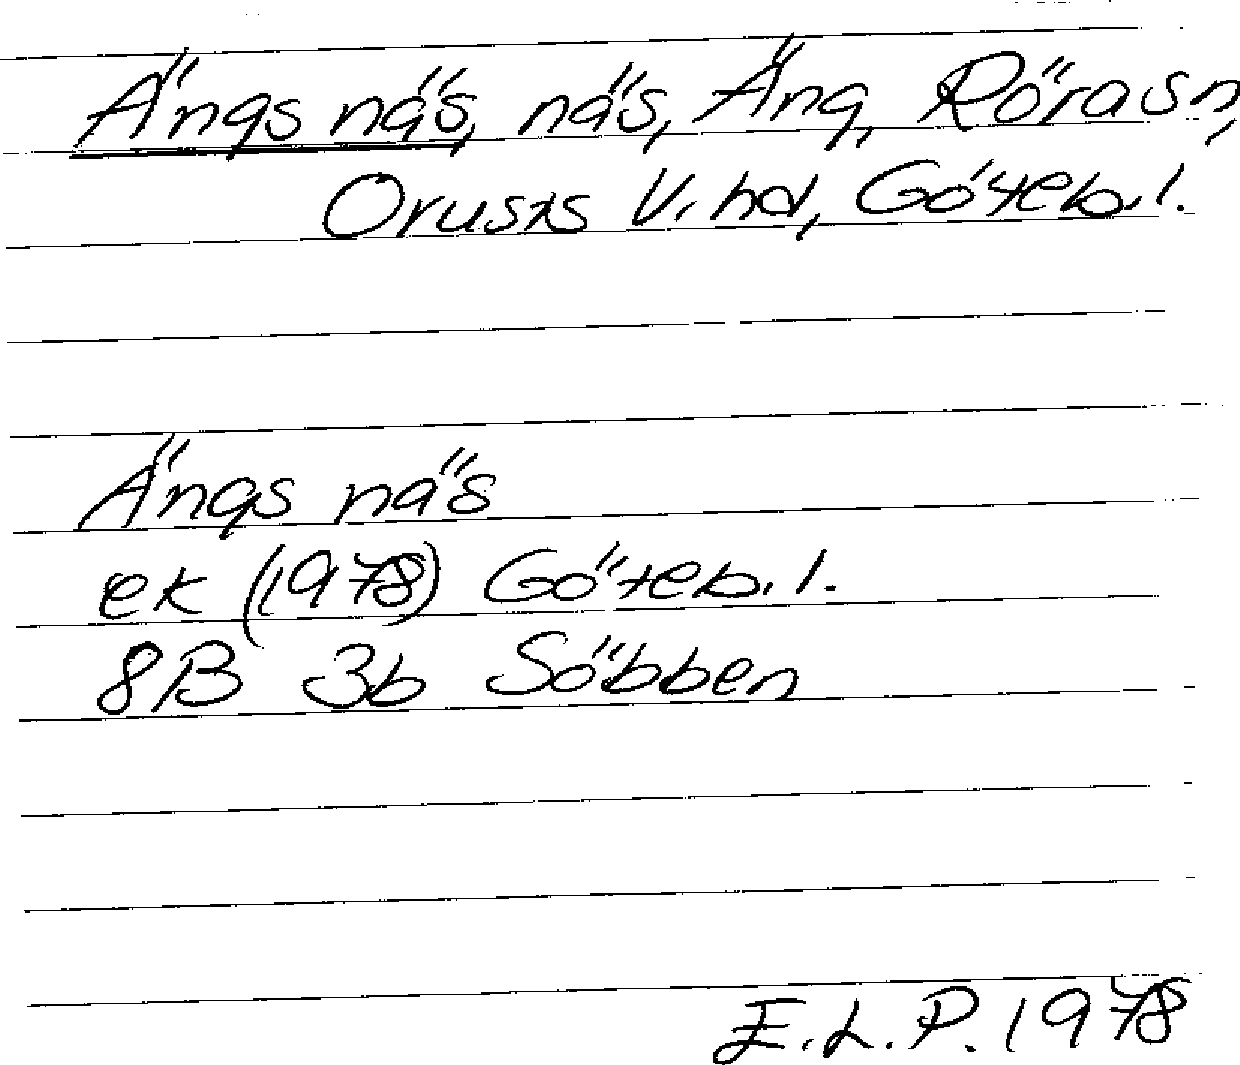 Ängs näs, näs, Äng, Röra sn,
Orusts V. hd, Göteb. l.
Ängs näs
ek (1978) Göteb. l.
8B 3b Söbben
E.L.P. 1978